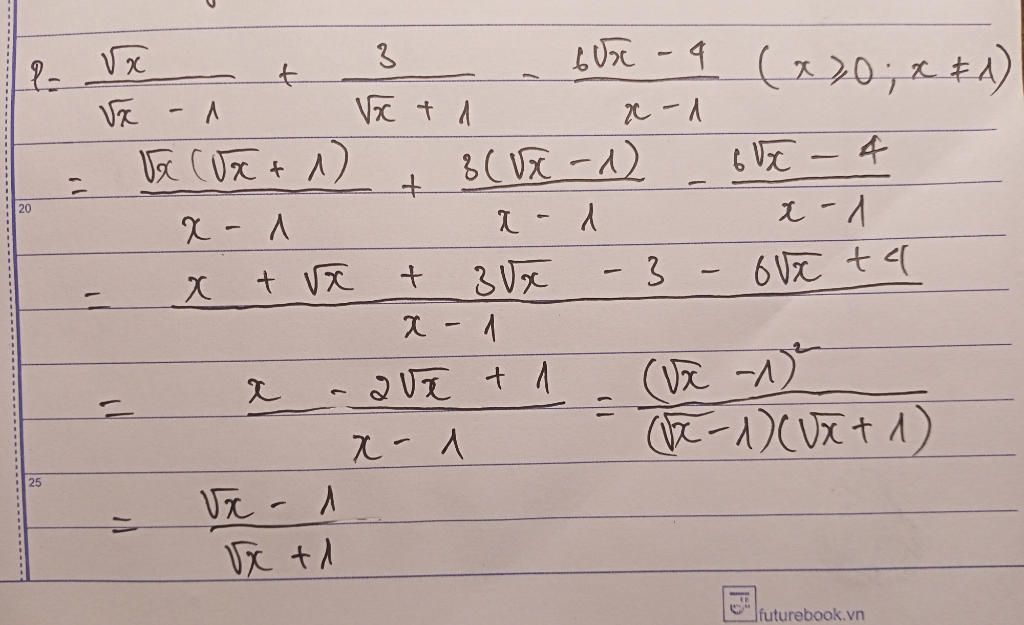 P = \frac{\sqrt{x}}{\sqrt{x} - 1} + \frac{3}{\sqrt{x} + 1} - \frac{6\sqrt{x} - 4}{x - 1} (x ⩾ 0; x ≠ 1)
= \frac{\sqrt{x}(\sqrt{x} + 1)}{x - 1} + \frac{3(\sqrt{x} - 1)}{x - 1} - \frac{6\sqrt{x} - 4}{x - 1}
20
= \frac{x + \sqrt{x} + 3\sqrt{x} - 3 - 6\sqrt{x} + 4}{x - 1}
= \frac{x - 2\sqrt{x} + 1}{x - 1} = \frac{(\sqrt{x} - 1)^2}{(\sqrt{x} - 1)(\sqrt{x} + 1)}
25
= \frac{\sqrt{x} - 1}{\sqrt{x} + 1}
futurebook.vn